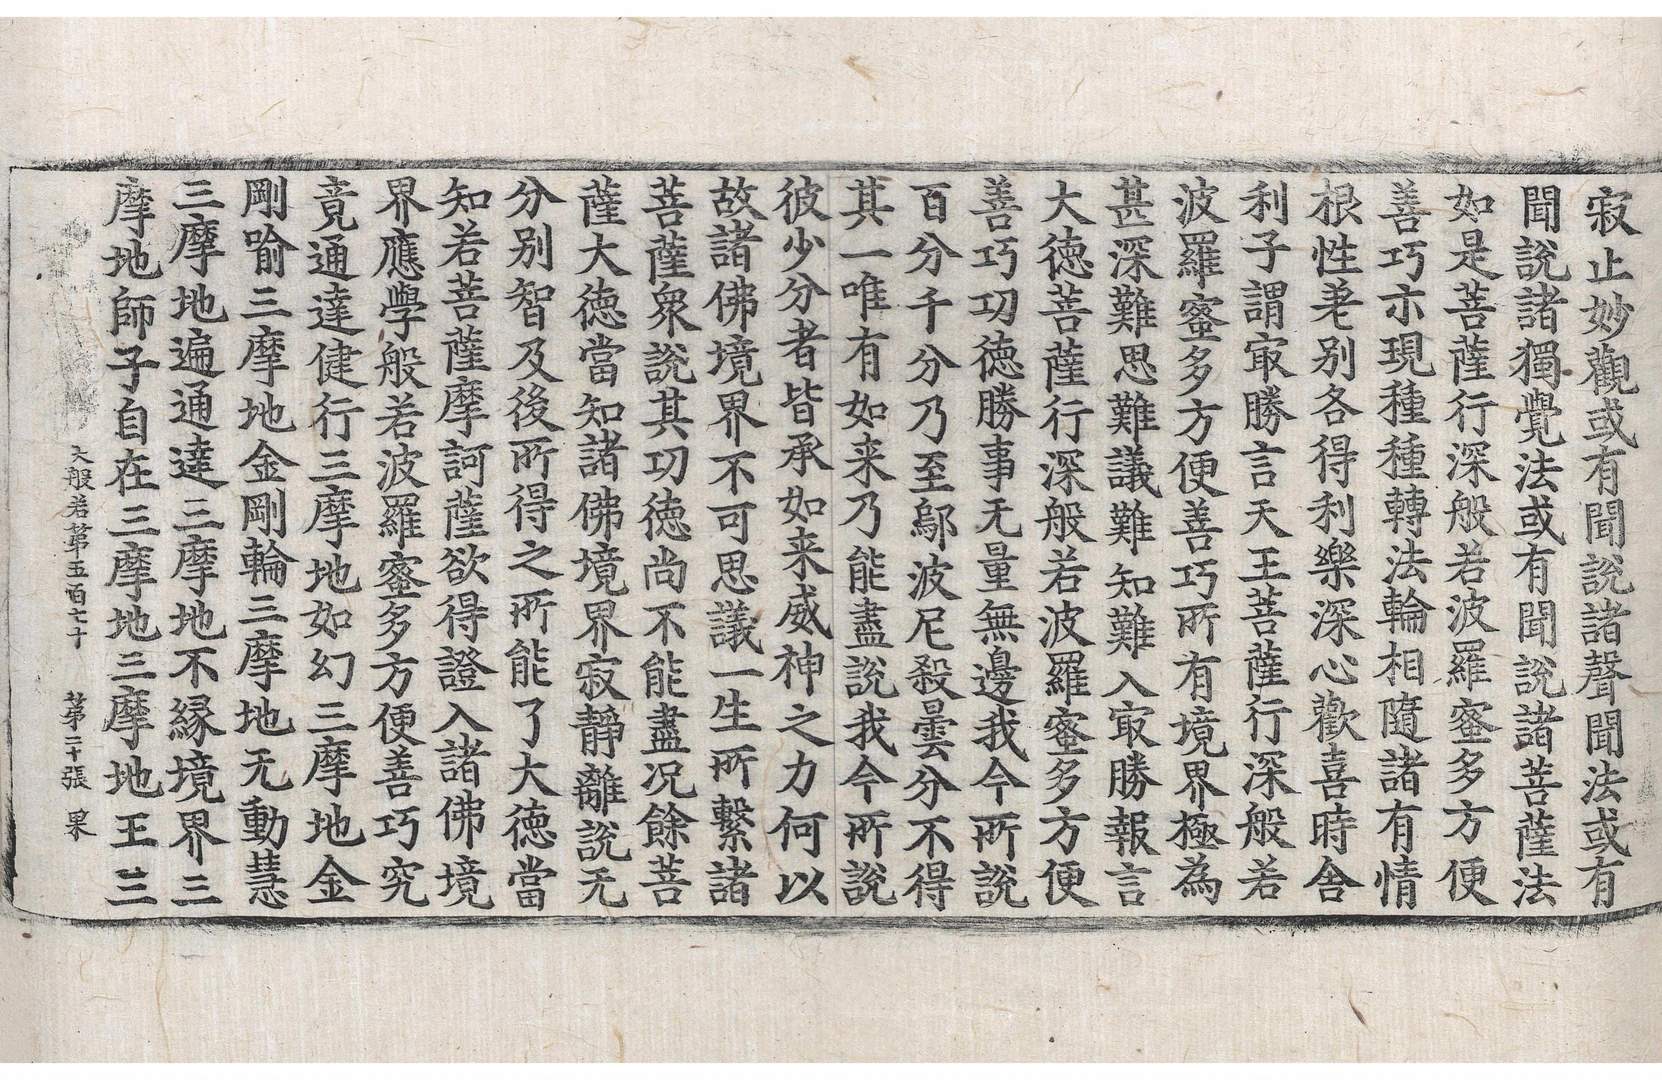 寂止妙觀或有聞說諸聲聞法或有
聞說諸獨覺法或有聞說諸菩薩法
如是菩薩行深般若波羅蜜多方便
善巧示現種種轉法輪相隨諸有情
根性差别各得利樂深心歡喜時舎
利子謂㝡勝言天王菩薩行深般若
波羅蜜多方便善巧所有境界極為
甚深難思難議難知難入㝡勝報言
大徳菩薩行深般若波羅蜜多方便
善巧功徳勝事无量無邊我今所說
百分千分乃至鄔波尼殺曇分不得
其一唯有如来乃能盡說我今所說
彼少分者皆承如来威神之力何以
故諸佛境界不可思議一生所繫諸
菩薩衆說其功徳尚不能盡况餘菩
薩大徳當知諸佛境界寂靜離說无
分别智及後所得之所能了大徳當
知若菩薩摩訶薩欲得證入諸佛境
界應學般若波羅蜜多方便善巧究
竟通達健行三摩地如幻三摩地金
剛喻三摩地金剛輪三摩地无動慧
三摩地遍通達三摩地不縁境界三
摩地師子自在三摩地三摩地王三
大般若第五百七十 第二十張 果